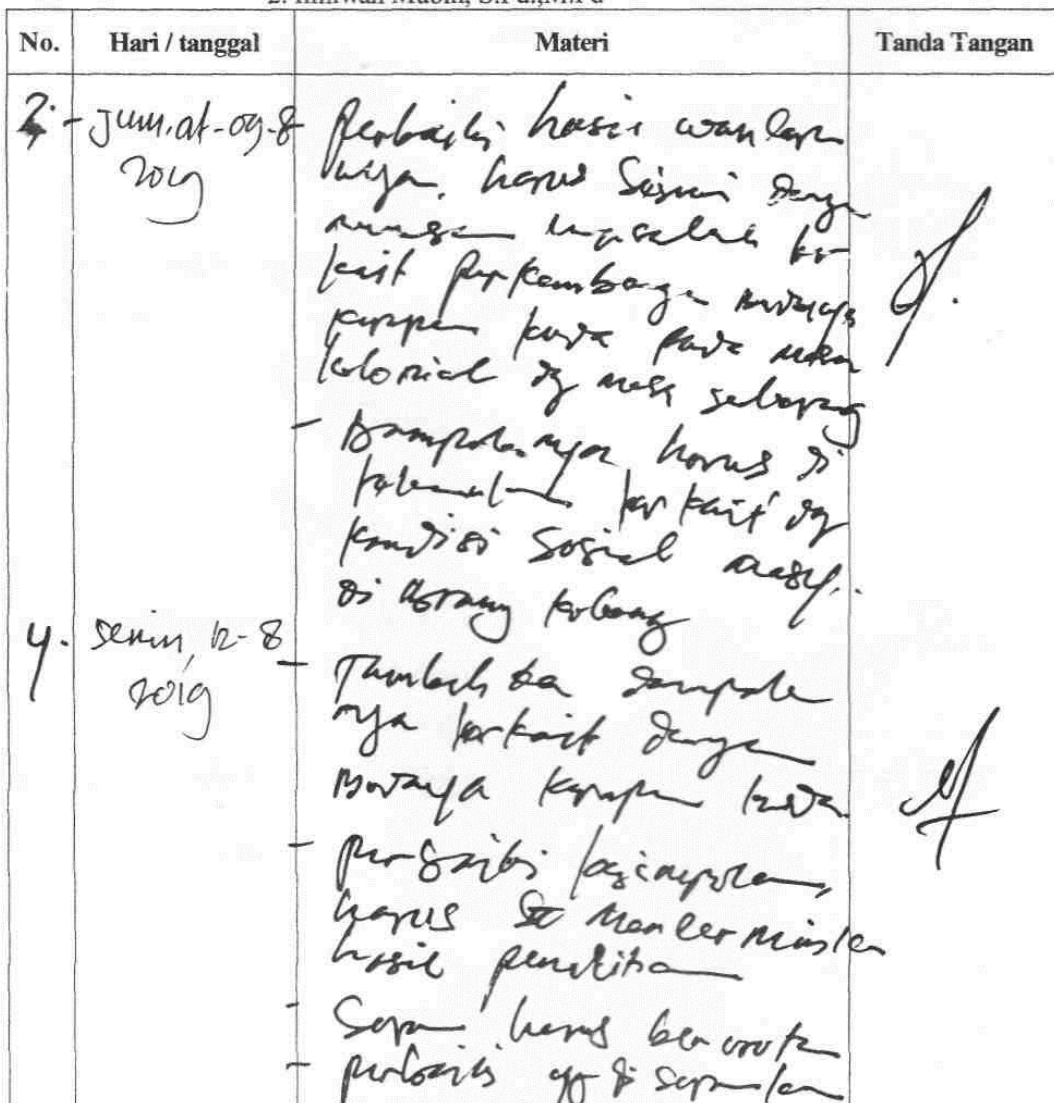 2. Ilmiwan Mubin, S.Pd.,M.Pd
No. Hari / tanggal Materi Tanda Tangan
3. - Jum.at-09-8 Perbaiki hasil wawancara
2019 nya, harus sesuai dengan
rumusan masalah ter
kait perkembangan budaya
karapan kuda pada masa
kolonial dg masa sekarang
- Dampaknya harus di
terkait dg
kondisi sosial masy..
di
4. Senin, 12-8
2019 - Tambahkan dampak
nya terkait dengan
Budaya karapan kuda
- Perbaiki kesimpulan,
harus mencerminkan
hasil penelitian
- Saran harus berurutan
- perbaiki yg di sarankan